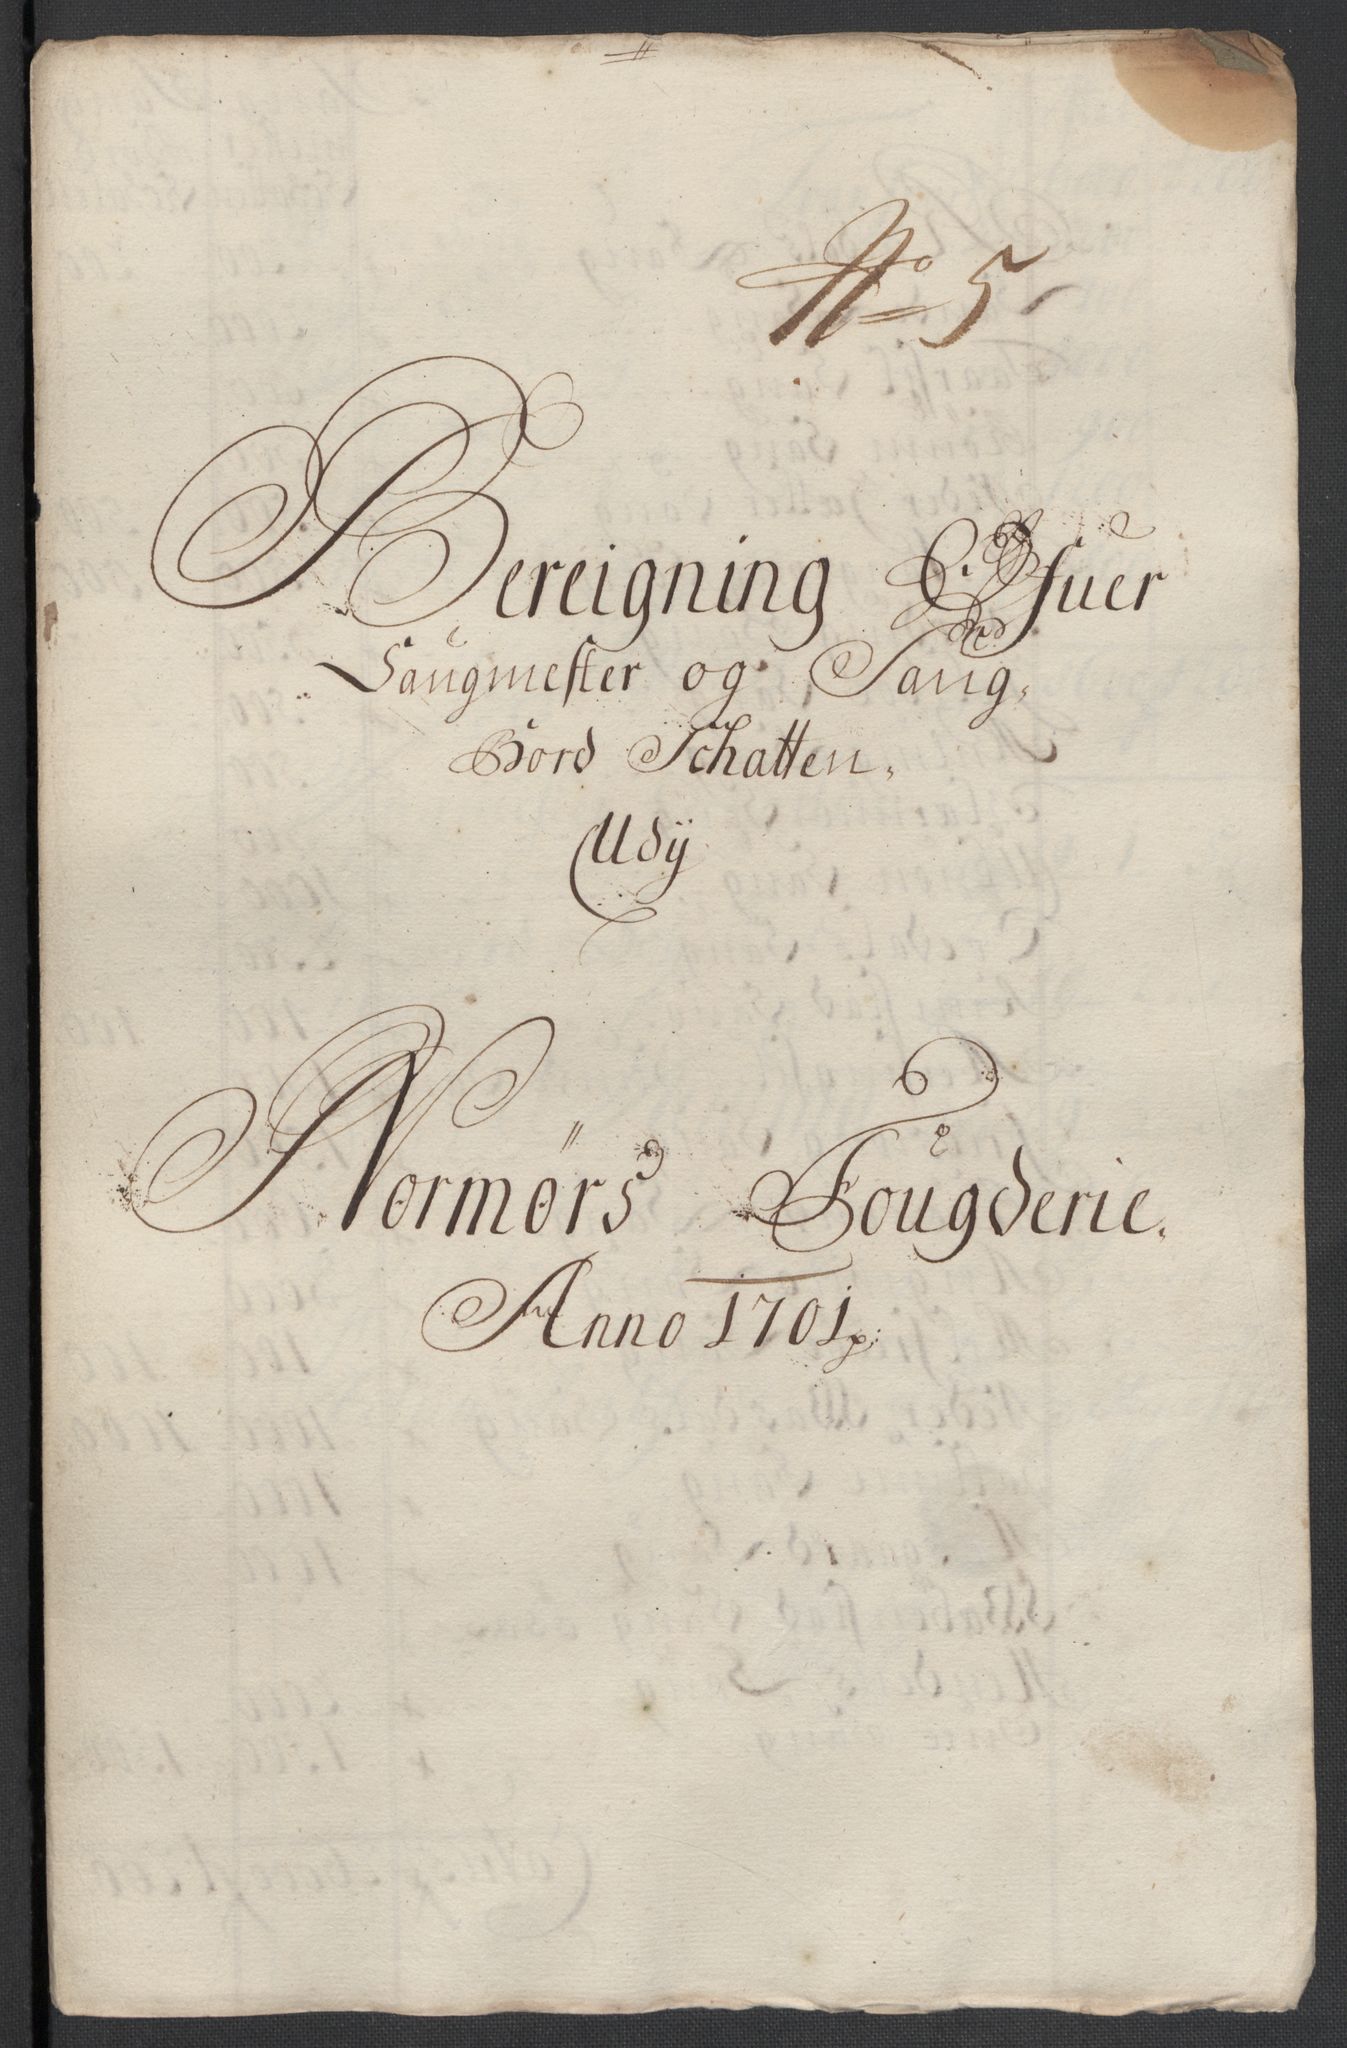 No 5
Bereigning Ofuer
Saugmester og Saug,
Bord Schatten,
Udÿ
Normørs Fougderie,
Anno 1701